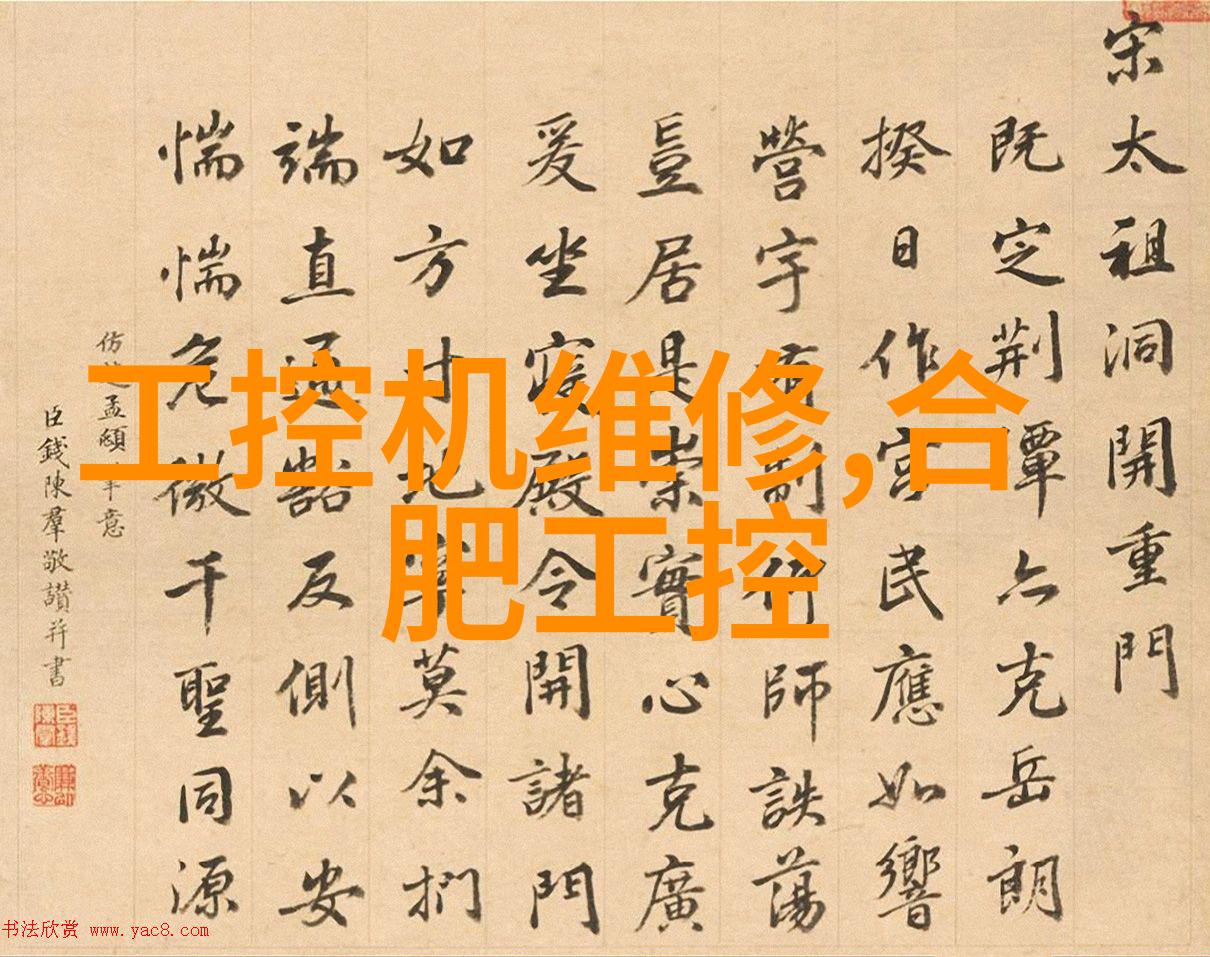 宋太祖洞開重門
既定荆潭亦克岳朗
揆日作宫民應如響
營宇有制師詄蕩
豈居是崇實心克廣
爰坐寝殿令開諸門
如方寸地莫余捫
端直通豁反側以安
惴惴危微千聖同源
仿孟頫意
臣錢陳羣敬讃并書
工控机维修,合
肥工控
书法欣赏 www.yac8.com